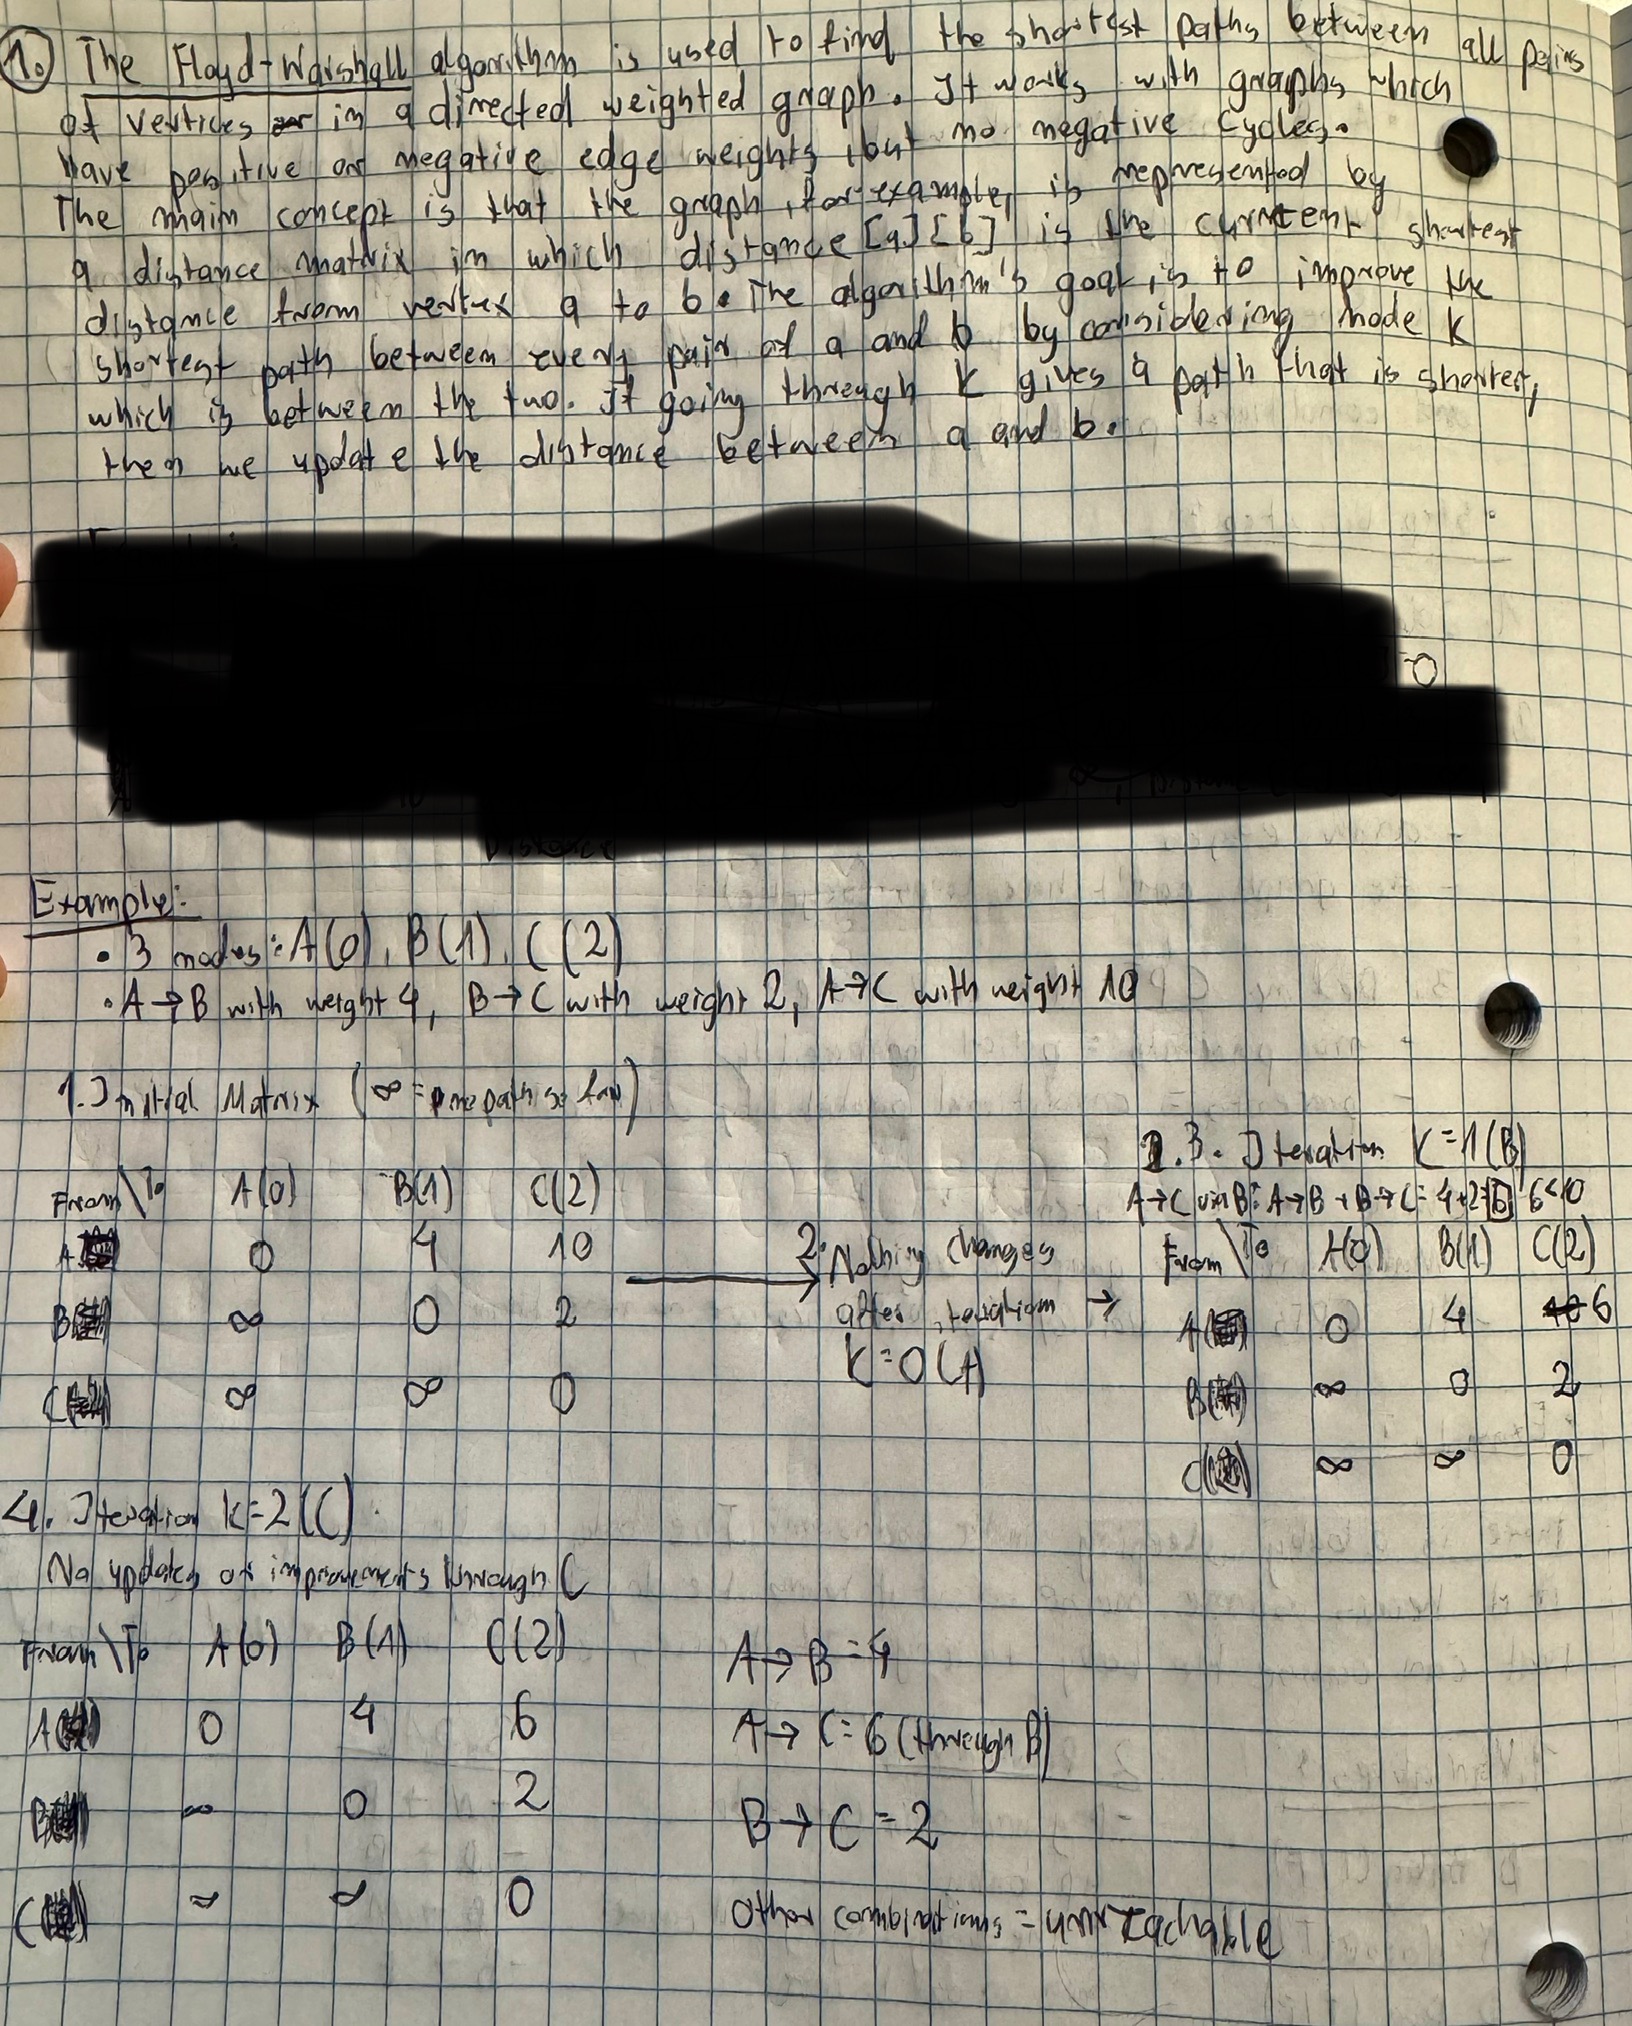 1. The Floyd-Warshall algorithm is used to find the shortest paths between all pairs
of vertices in a directed weighted graph. It works with graphs which
have positive or negative edge weights, but no negative cycles.
The main concept is that the graph, for example, is represented by
a distance matrix in which distance [a][b] is the current shortest
distance from vertex a to b. The algorithm's goal is to improve the
shortest path between every pair of a and b by considering node k
which is between the two. If going through k gives a path that is shorter,
then we update the distance between a and b.
Example:
• 3 nodes: A(0), B(1), C(2)
• A→B with weight 4, B→C with weight 2, A→C with weight 10
1. Initial Matrix (∞ = no path so far)
From\To A(0) B(1) C(2)
A 0 4 10
B ∞ 0 2
C ∞ ∞ 0
2. Nothing changes
after iteration →
K=0(A)
3. Iteration K=1(B)
A→C via B: A→B + B→C = 4+2=6 6<10
From\To A(0) B(1) C(2)
A 0 4 10 6
B ∞ 0 2
C ∞ ∞ 0
4. Iteration K=2(C)
No updates or improvements through C
From\To A(0) B(1) C(2)
A 0 4 6
B ∞ 0 2
C ∞ ∞ 0
A→B=4
A→C=6 (through B)
B→C=2
Other combinations = unreachable